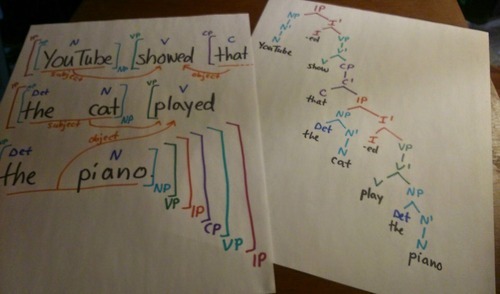 IP NP N VP V CP C
[[YouTube]NP [showed [that
subject object
IP NP Det N VP V
[[the cat]NP [played
subject object
NP Det N
[the piano]NP]VP]IP]CP]VP]IP
IP
NP I'
N' I VP
N -ed V'
YouTube V CP
show C'
C IP
that NP I'
Det N' I VP
the N -ed V'
cat V NP
play Det N'
the N
piano